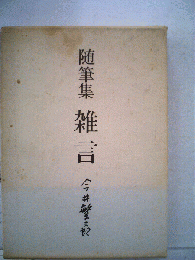 随筆集
雑言
今井繁三郎